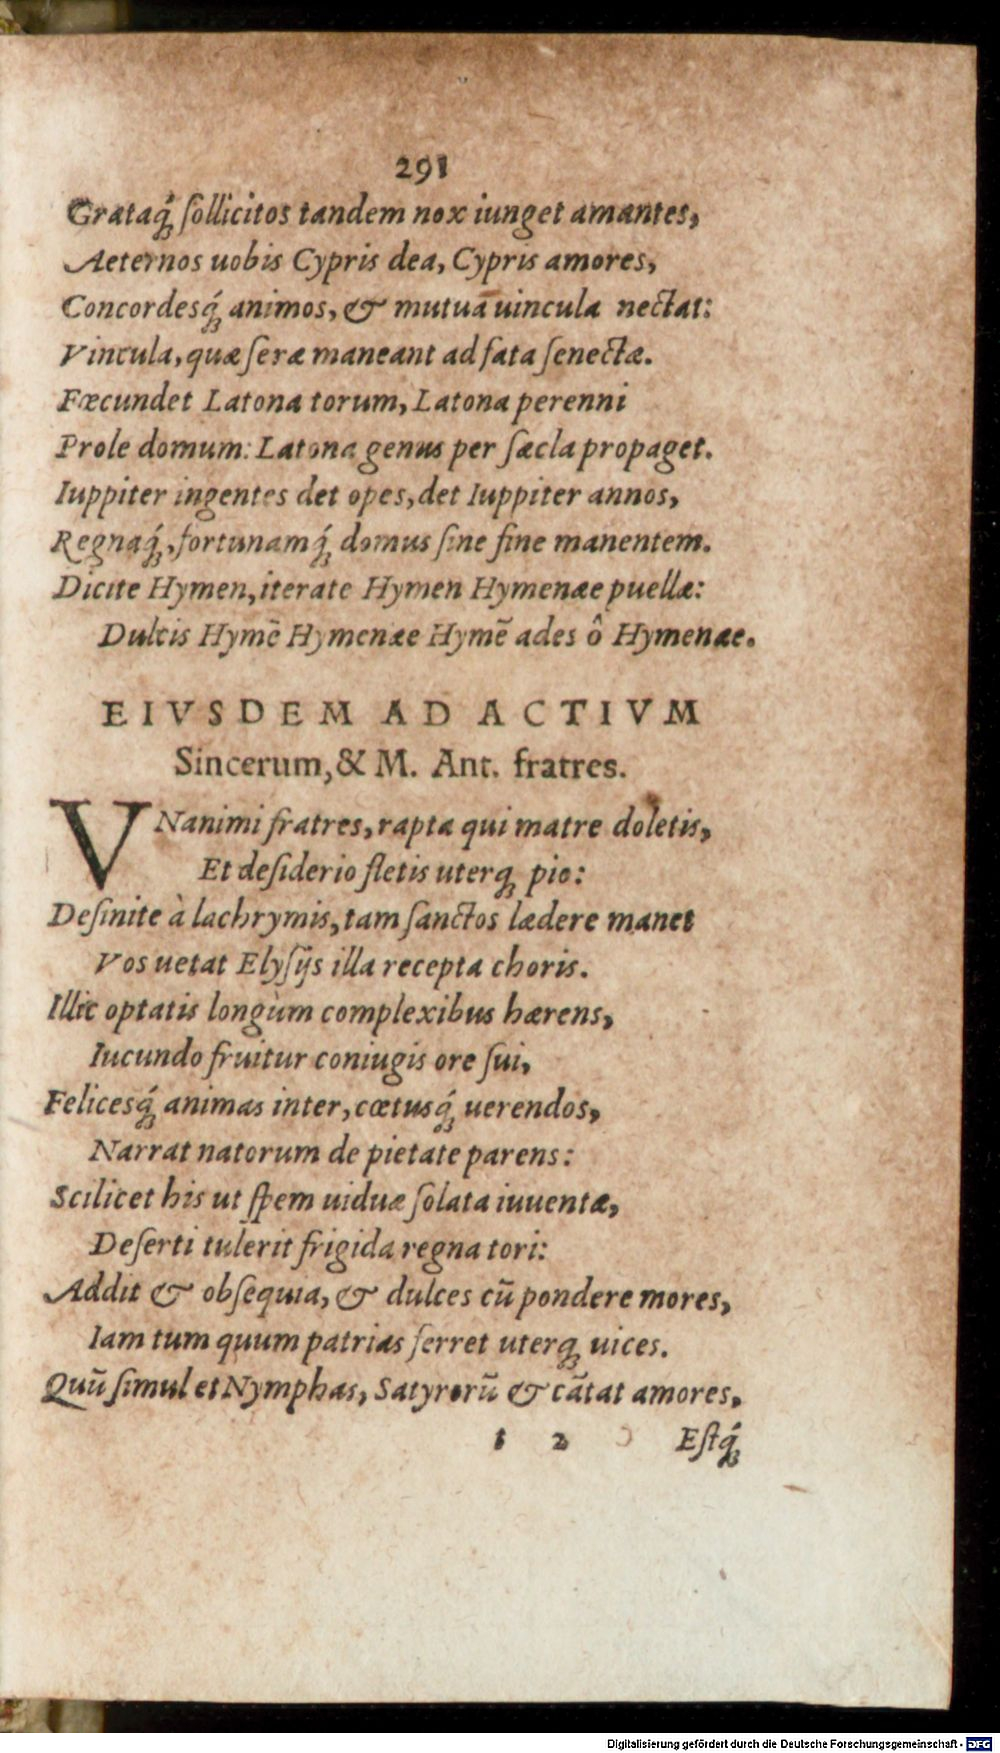 291
Grataq́ꝫ ſollicitos tandem nox iunget amantes,
Aeternos uobis Cypris dea, Cypris amores,
Concordesq́ꝫ animos, & mutuā uincula nectat:
Vincula, quæ ſeræ maneant ad fata ſenectæ.
Fœcundet Latona torum, Latona perenni
Prole domum: Latona genus per ſæcla propaget.
Iuppiter ingentes det opes, det Iuppiter annos,
Regnaq́ꝫ, fortunamq́ꝫ domus ſine fine manentem.
Dicite Hymen, iterate Hymen Hymenæe puellæ:
Dulcis Hymē Hymenæe Hymē ades ô Hymenæe.
EIVSDEM AD ACTIVM
Sincerum, & M. Ant. fratres.
VNanimi fratres, rapta qui matre doletis,
Et deſiderio fletis uterqꝫ pio:
Deſinite à lachrymis, tam ſanctos lædere manes
Vos uetat Elyſijs illa recepta choris.
Illic optatis longùm complexibus hærens,
Iucundo fruitur coniugis ore ſui,
Felicesq́ꝫ animas inter, cœtusq́ꝫ uerendos,
Narrat natorum de pietate parens:
Scilicet his ut ſpem uiduæ ſolata iuuentæ,
Deſerti tulerit frigida regna tori:
Addit & obſequia, & dulces cū pondere mores,
Iam tum quum patrias ferret uterqꝫ uices.
Quū ſimul et Nymphas, Satyrorū & cātat amores,
t 2 Eſtq́ꝫ
Digitalisierung gefördert durch die Deutsche Forschungsgemeinschaft - DFG